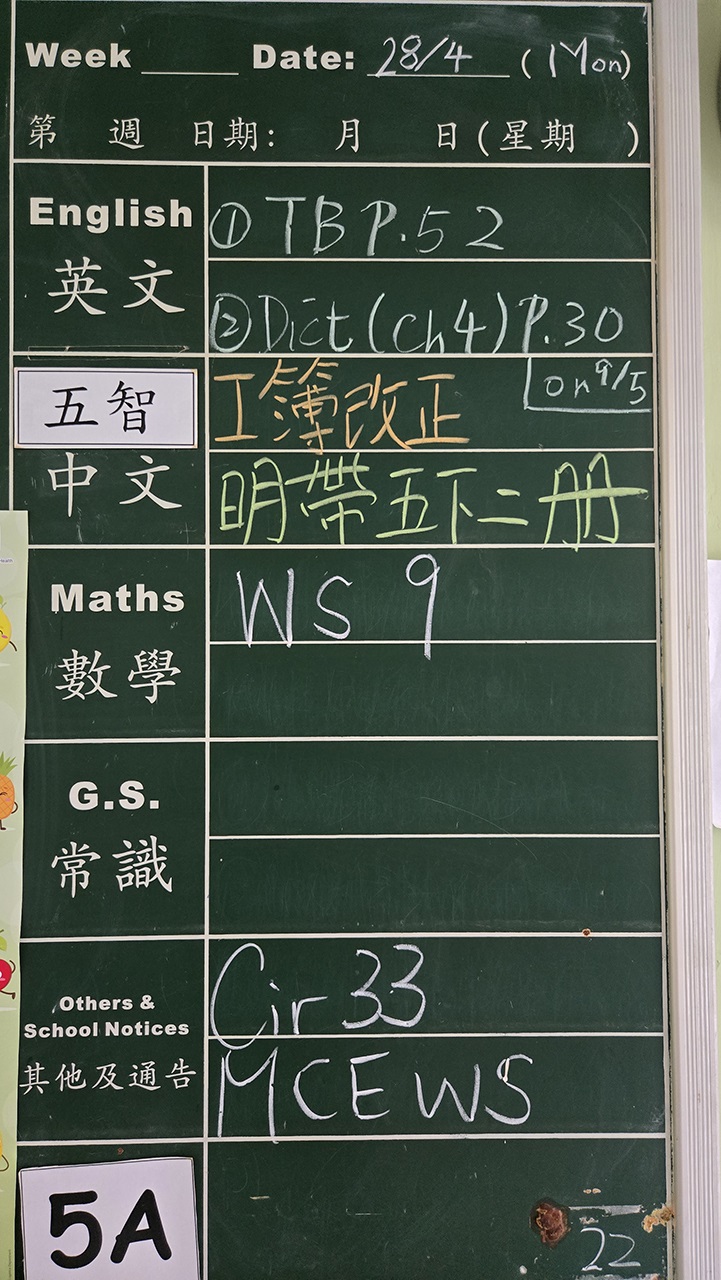 Week ____ Date: 28/4 (Mon)
第 週 日期: 月 日(星期 )
English
英文
① TB P.52
② Dict (Ch4) P.30
on 9/5
五智
中文
工簿改正
明帶五下二冊
Maths
數學
WS 9
G.S.
常識
Others &
School Notices
其他及通告
Cir 33
MCE WS
5A
22